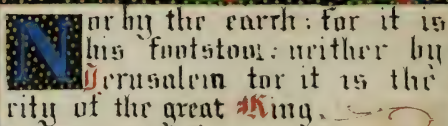 Nor by the earth: for it is
his footstool: neither by
Jerusalem for it is the
city of the great King.